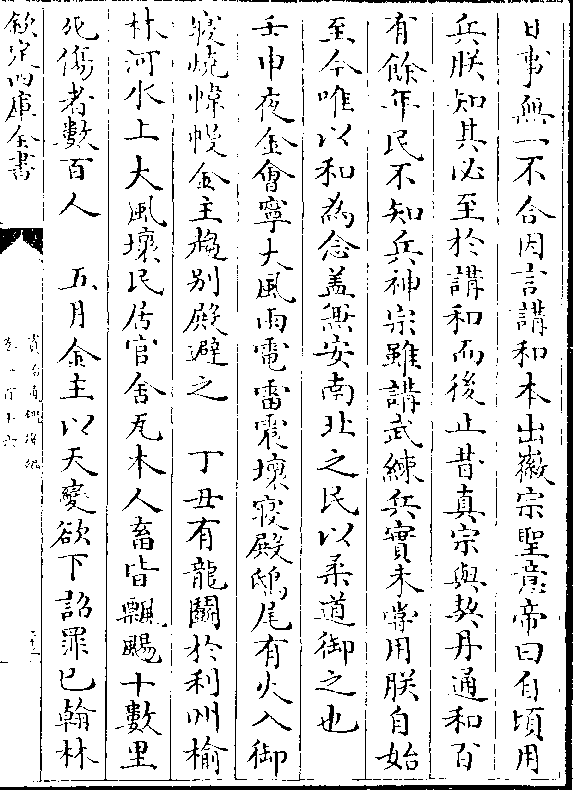 日事無一不合因言講和本出徽宗聖意帝曰自頃用
兵朕知其必至於講和而後止昔真宗與契丹通和百
有餘年民不知兵神宗雖講武練兵實未嘗用朕自始
至今唯以和為念盖無安南北之民以柔道御之也
壬申夜金㑹寧大風雨電雷震壞寢殿鴟尾有火入御
寢燒幃幔金主趨别殿避之　丁丑有龍鬭於利州榆
林河水上大風壞民居官舍瓦木人畜皆飄颺十數里
死傷者數百人　五月金主以天變欲下詔罪已翰林
欽定四庫全書